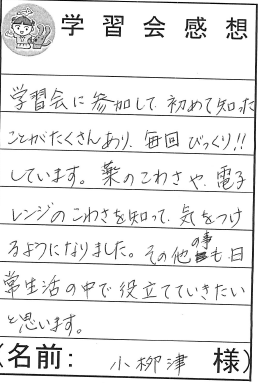 学習会感想
学習会に参加して、初めて知った
ことがたくさんあり、毎回びっくり!!
しています。薬のこわさや、電子
レンジのこわさを知って、気をつけ
るようになりました。その他の事も日
常生活の中で役立てていきたい
と思います。
(名前: 小柳津 様)